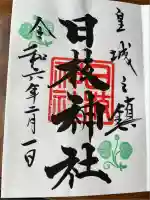 皇城之鎮
日枝神社
令和六年二月一日